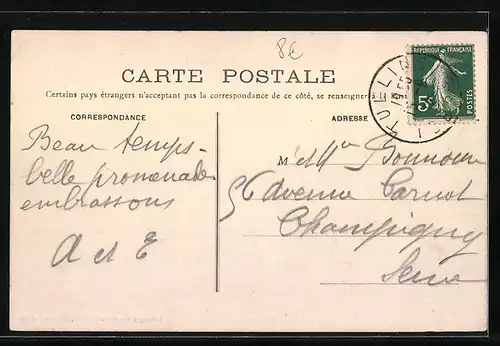 8€
CARTE POSTALE
Certains pays étrangers n'acceptant pas la correspondance de ce côté, se renseigner à
CORRESPONDANCE
ADRESSE
REPUBLIQUE FRANÇAISE
5c
POSTES
Beau temps-
belle promenade
embrassons
A et E
M
56 Avenue Carnot
Champigny
Seine